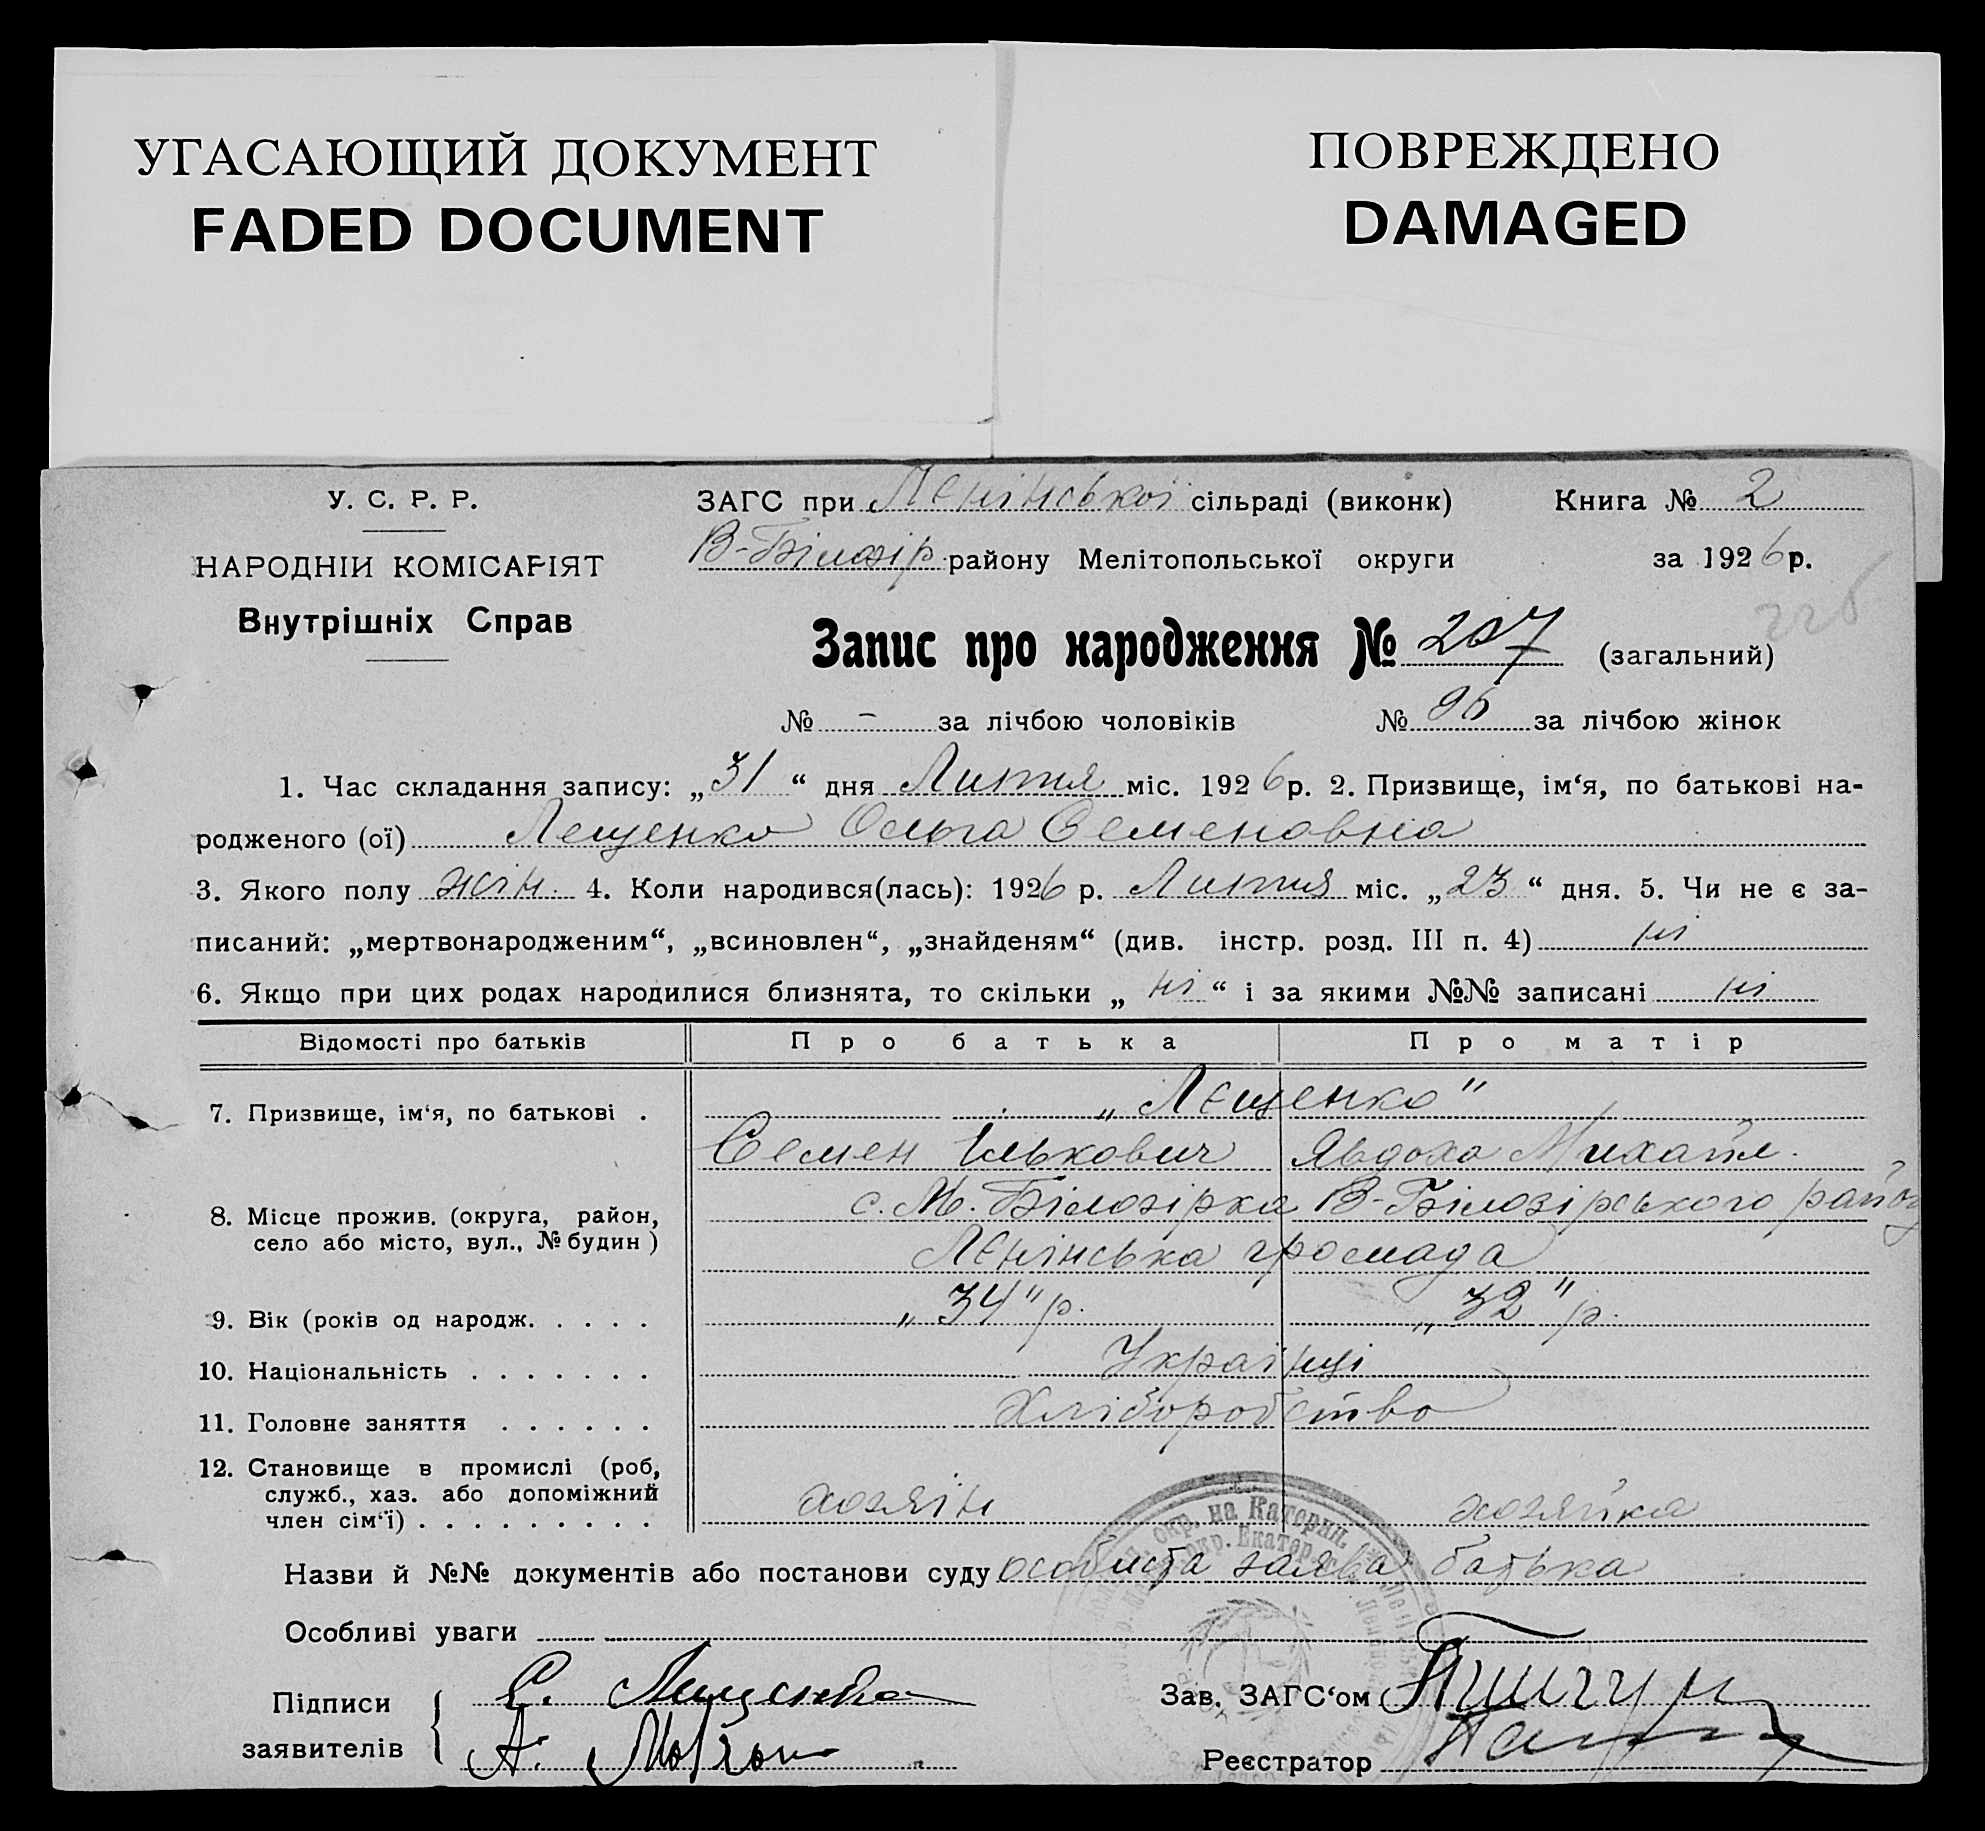 УГАСАЮЩИЙ ДОКУМЕНТ
FADED DOCUMENT
ПОВРЕЖДЕНО
DAMAGED
У. С. Р. Р.
НАРОДНІЙ КОМІСАРІЯТ
Внутрішніх Справ
ЗАГС при Ленінської сільраді (виконк) Книга № 2
В-Білозір району Мелітопольської округи за 1926 р.
226
Запис про народження № 207 (загальний)
№ – за лічбою чоловіків № 96 за лічбою жінок
1. Час складання запису: „31“ дня Липня міс. 1926 р. 2. Призвище, ім‘я, по батькові на-
родженого (ої) Лещенко Ольга Семеновна
3. Якого полу жін. 4. Коли народився(лась): 1926 р. Липня міс. „23“ дня. 5. Чи не є за-
писаний: „мертвонародженим“, „всиновлен“, „знайденям“ (див. інстр. розд. III п. 4) ні
6. Якщо при цих родах народилися близнята, то скільки „ні“ і за якими №№ записані ні
Відомості про батьків Про батька Про матір
7. Призвище, ім‘я, по батькові . „Лєщенко"
Семен Ількович Явдоха Михайл.
8. Місце прожив. (округа, район, с. М. Білозірка В-Білозірського району
село або місто, вул., № будин) Лєнінська громада
9. Вік (років од народж. . . . . „34" р. „32" р.
10. Національність . . . . . . . Українці
11. Головне заняття . . . . . . Хліборобство
12. Становище в промислі (роб,
служб., хаз. або допоміжний хозяїн хозяйка
член сім‘ї) . . . . . . . . .
Назви й №№ документів або постанови суду особиста заява батька
Особливі уваги
Підписи С. Лещенко Зав. ЗАГС‘ом
заявителів А. Реєстратор
окр. на Катерин.
окр. Екатер.